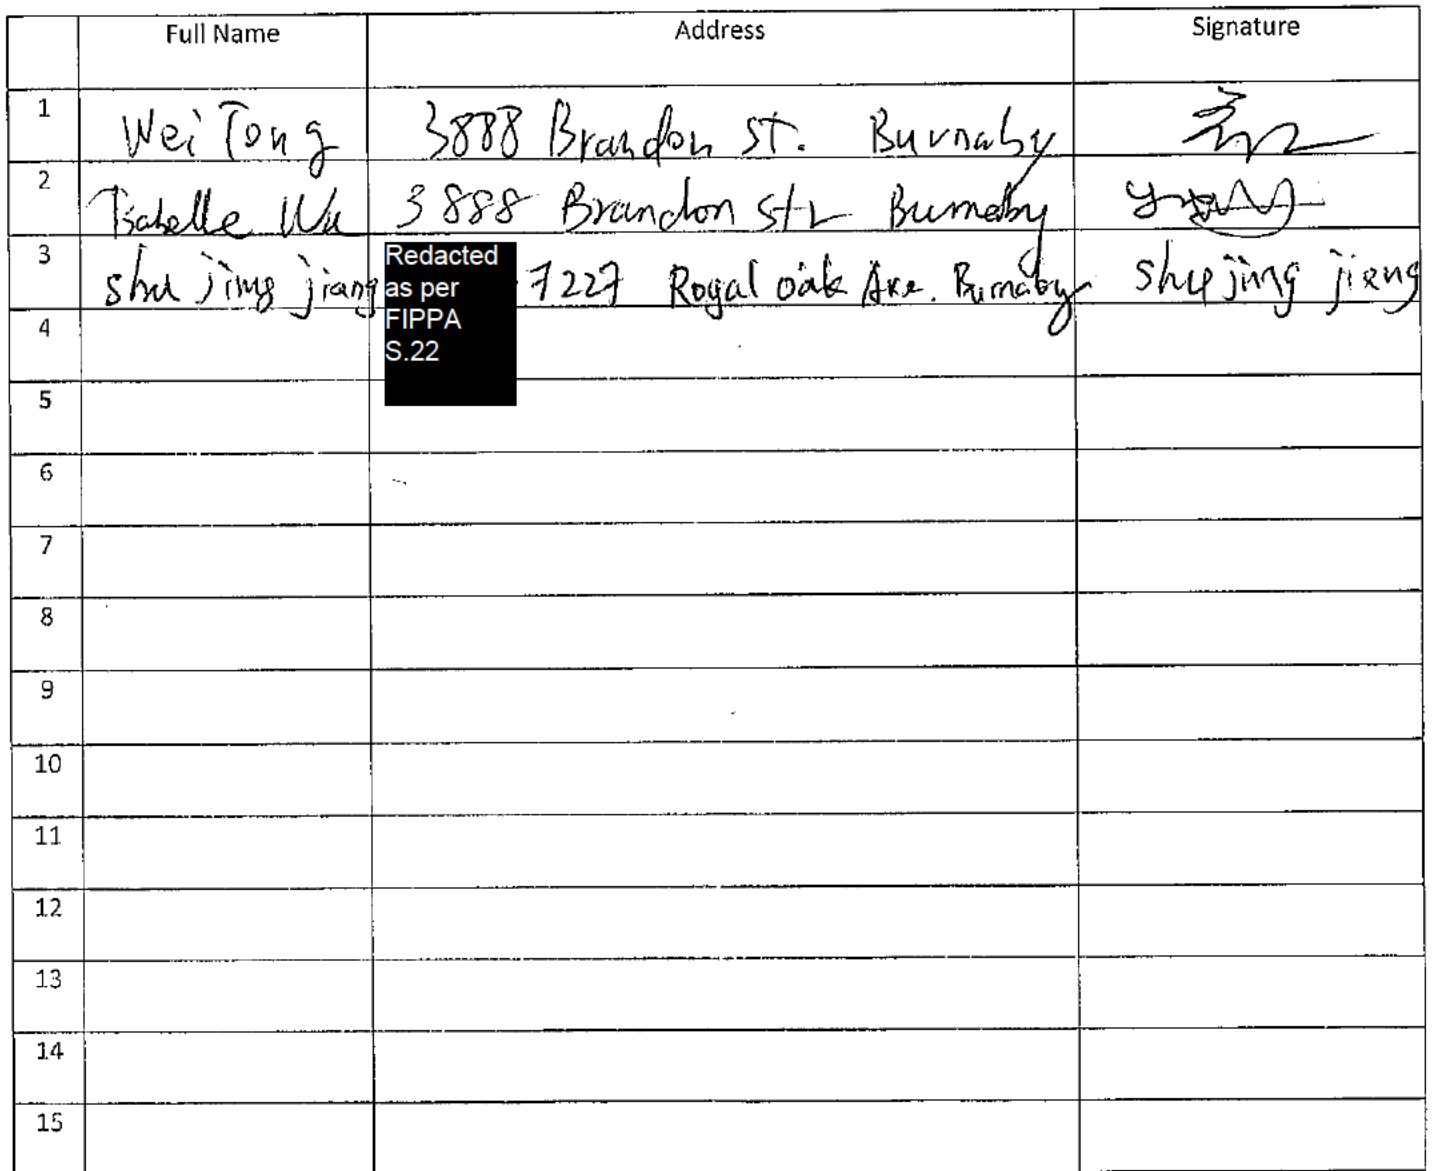 Full Name Address Signature
1 Wei Tong 3888 Brandon St. Burnaby
2 Isabelle Wu 3888 Brandon St Burnaby
3 shu jing jiang Redacted as per FIPPA S.22 7227 Royal oak Ave. Burnaby shu jing jiang
4
5
6
7
8
9
10
11
12
13
14
15